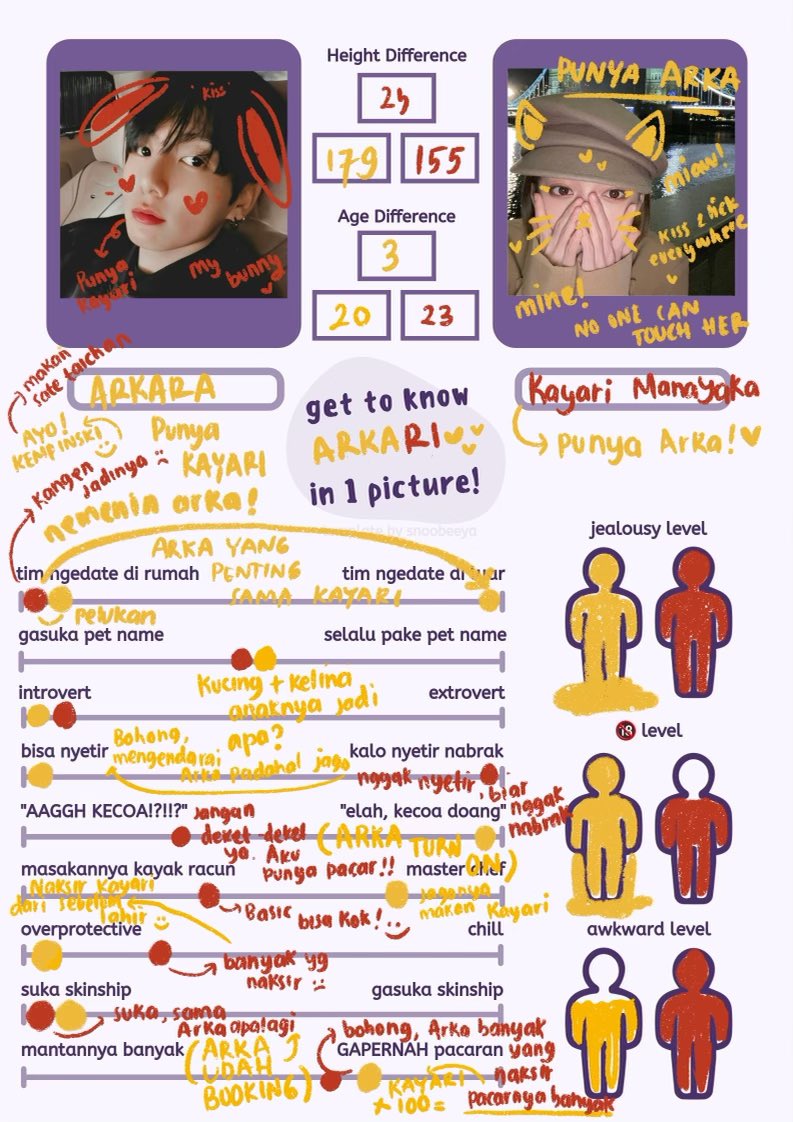 Height Difference
24
179
155
Age Difference
3
20
23
Kiss
Punya
Kayari
my
bunny
PUNYA ARKA
miaw!
KISS 2 lick
everywhere
mine!
NO ONE CAN
TOUCH HER
makan
sate taichan
ARKARA
AYO!
KEMPINSKI
Punya
KAYARI
Kangen
jadinya
nemenin arka!
get to know
ARKARI
in 1 picture!
template by snoobeeya
Kayari Manayaka
punya Arka!
ARKA YANG
PENTING
SAMA KAYARI
tim ngedate di rumah
tim ngedate di luar
pelukan
gasuka pet name
selalu pake pet name
Kucing + Kelinci
anaknya jadi
apa?
introvert
extrovert
bisa nyetir
kalo nyetir nabrak
Bohong,
mengendarai
Arka padahal jago
nggak nyetir, biar
nggak
nabrak
"AAGGH KECOA!?!!?"
"elah, kecoa doang"
jangan
deket-deket
ya. Aku
punya pacar!!
(ARKA TURN ON)
masakannya kayak racun
master chef
Basic bisa kok!
jagonya
makan Kayari
Naksir Kayari
dari sebelum
lahir
overprotective
chill
banyak yg
naksir
suka skinship
gasuka skinship
suka, sama
Arka apalagi
mantannya banyak
GAPERNAH pacaran
(ARKA
UDAH
BOOKING)
bohong, Arka banyak
yang
naksir
pacarnya banyak
KAYARI
x 100 =
jealousy level
18 level
awkward level